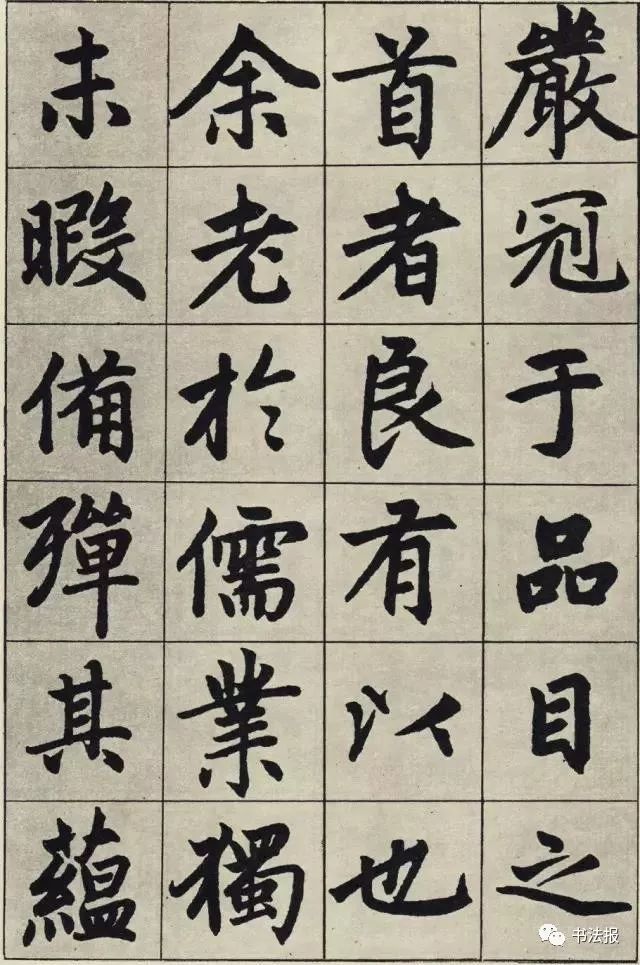 嚴冠于品目之
首者良有以也
余老於儒業獨
未暇備殫其蘊
书法报